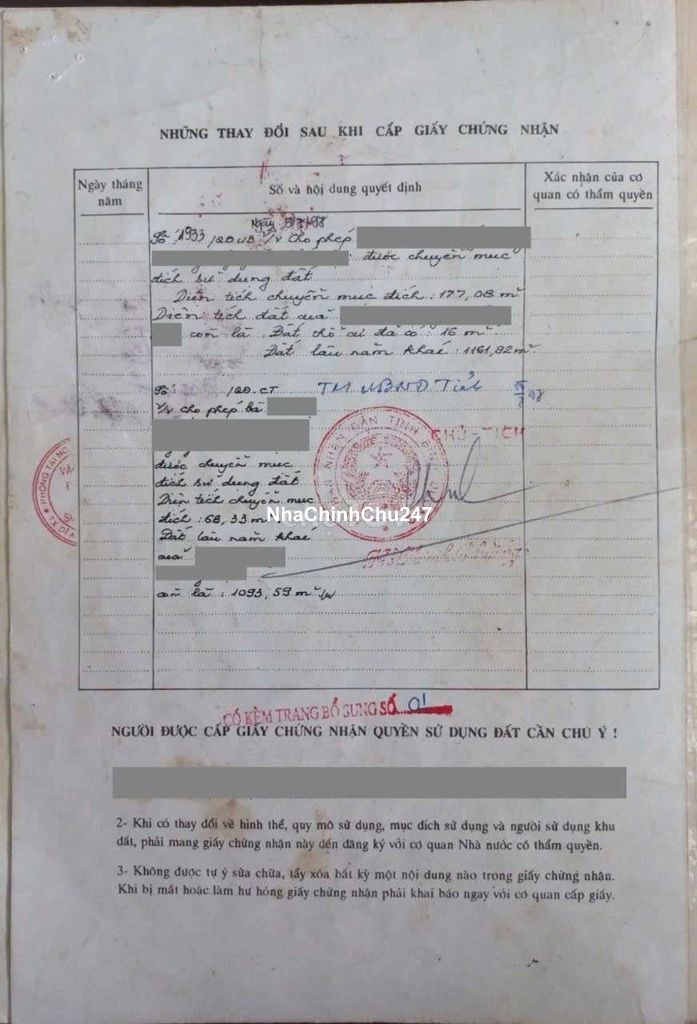 NHỮNG THAY ĐỔI SAU KHI CẤP GIẤY CHỨNG NHẬN
Ngày tháng năm
Số và nội dung quyết định
Xác nhận của cơ quan có thẩm quyền
Ngày
Số 1933 /QĐUB V/v Cho phép
được chuyển mục
đích sử dụng đất
Diện tích chuyển mục đích : 177,08 m²
Diện tích đất của
còn là Đất thổ cư đã có : 16 m²
Đất lâu năm khác : 1161,82m²
Số: /QĐ.CT TM UBND Tỉnh
V/v cho phép bà
CHỦ TỊCH
được chuyển mục
đích sử dụng đất
Diện tích chuyển mục
đích : 68,33 m²
NhaChinhChu247
Đất lâu năm khác
của
còn là : 1093,59 m²
CÓ KÈM TRANG BỔ SUNG SỐ 01
NGƯỜI ĐƯỢC CẤP GIẤY CHỨNG NHẬN QUYỀN SỬ DỤNG ĐẤT CẦN CHÚ Ý !
2- Khi có thay đổi về hình thể, quy mô sử dụng, mục đích sử dụng và người sử dụng khu
đất, phải mang giấy chứng nhận này đến đăng ký với cơ quan Nhà nước có thẩm quyền.
3- Không được tự ý sửa chữa, tẩy xóa bất kỳ một nội dung nào trong giấy chứng nhận.
Khi bị mất hoặc làm hư hỏng giấy chứng nhận phải khai báo ngay với cơ quan cấp giấy.